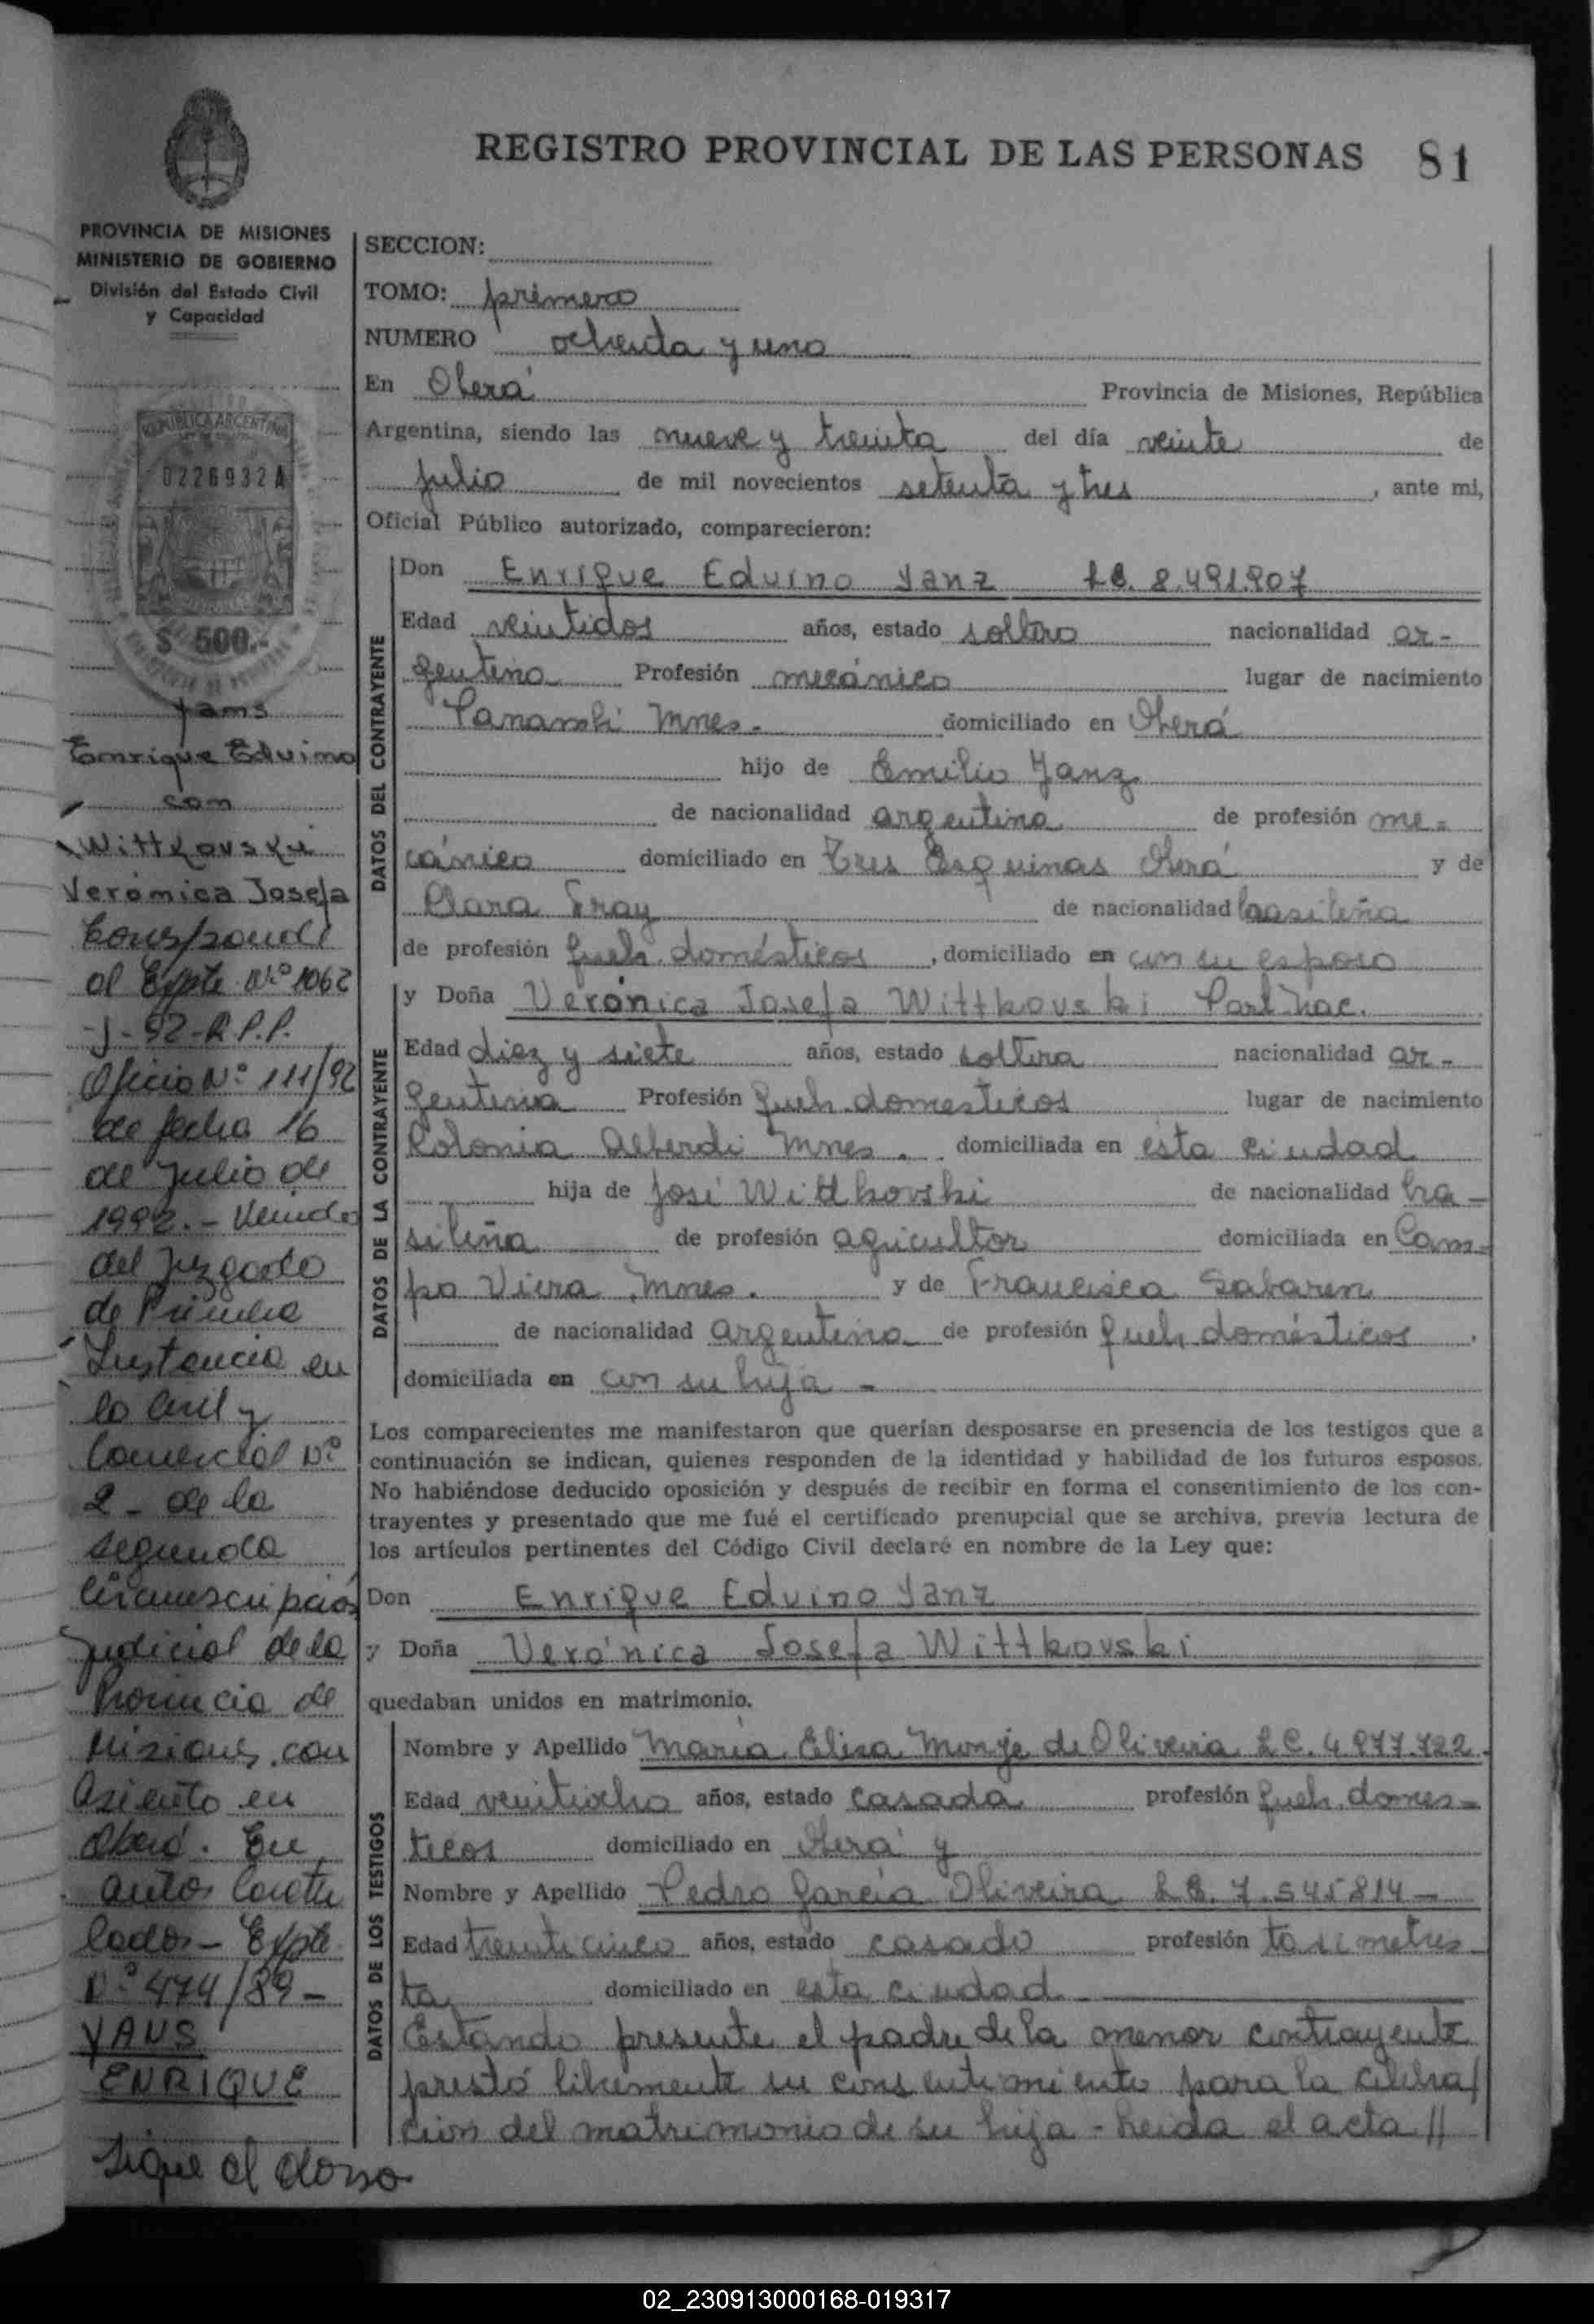 REGISTRO PROVINCIAL DE LAS PERSONAS 81
PROVINCIA DE MISIONES
MINISTERIO DE GOBIERNO
División del Estado Civil
y Capacidad
REPUBLICA ARGENTINA
0226932A
$ 500.-
Yams
Enrique Edvino
con
Wittkovski
Verónica Josefa
Corresponde
al Expte Nº 1062
-J-92-R.P.P.
Oficio Nº 111/92
de fecha 16
de Julio de
1992.- Venido
del Juzgado
de Primera
Instancia en
lo Civil y
Comercial Nº
2 - de la
segunda
Circunscripción
Judicial de la
Provincia de
Misiones, con
Asiento en
Oberá. En
autos Caratu
lados - Expte
Nº 474/89 -
YANS
ENRIQUE
Sigue al dorso
SECCION:
TOMO: primero
NUMERO ochenta y uno
En Oberá Provincia de Misiones, República
Argentina, siendo las nueve y treinta del día veinte de
julio de mil novecientos setenta y tres, ante mi,
Oficial Público autorizado, comparecieron:
DATOS DEL CONTRAYENTE
Don Enrique Edvino Yanz L.E. 8.491.907
Edad veintidos años, estado soltero nacionalidad ar-
gentina Profesión mecánico lugar de nacimiento
Panambi Mnes. domiciliado en Oberá
hijo de Emilio Yanz
de nacionalidad argentina de profesión me-
cánico domiciliado en Tres Esquinas Oberá y de
Clara Fray de nacionalidad brasileña
de profesión queh. domésticos, domiciliado en con su esposo
DATOS DE LA CONTRAYENTE
y Doña Verónica Josefa Wittkovski Part. Nac.
Edad diez y siete años, estado soltera nacionalidad ar-
gentina Profesión queh. domesticos lugar de nacimiento
Colonia Alberdi Mnes. domiciliada en esta ciudad
hija de José Wittkovski de nacionalidad bra-
sileña de profesión agricultor domiciliada en Cam-
po Viera, Mnes. y de Francisca Sabaren
de nacionalidad argentina de profesión queh. domésticos,
domiciliada en con su hija -
Los comparecientes me manifestaron que querían desposarse en presencia de los testigos que a
continuación se indican, quienes responden de la identidad y habilidad de los futuros esposos.
No habiéndose deducido oposición y después de recibir en forma el consentimiento de los con-
trayentes y presentado que me fué el certificado prenupcial que se archiva, previa lectura de
los artículos pertinentes del Código Civil declaré en nombre de la Ley que:
Don Enrique Edvino Yanz
y Doña Verónica Josefa Wittkovski
quedaban unidos en matrimonio.
DATOS DE LOS TESTIGOS
Nombre y Apellido María Elisa Monje de Oliveira L.C. 4.977.722.
Edad veintiocho años, estado casada profesión queh. domes-
ticos domiciliado en Oberá y
Nombre y Apellido Pedro García Oliveira L.E. 7.545814-
Edad treinticinco años, estado casado profesión taximetris
ta, domiciliado en esta ciudad
Estando presente el padre de la menor contrayente
prestó libremente su consentimiento para la celebra/
ción del matrimonio de su hija - Leida el acta //
02_230913000168-019317